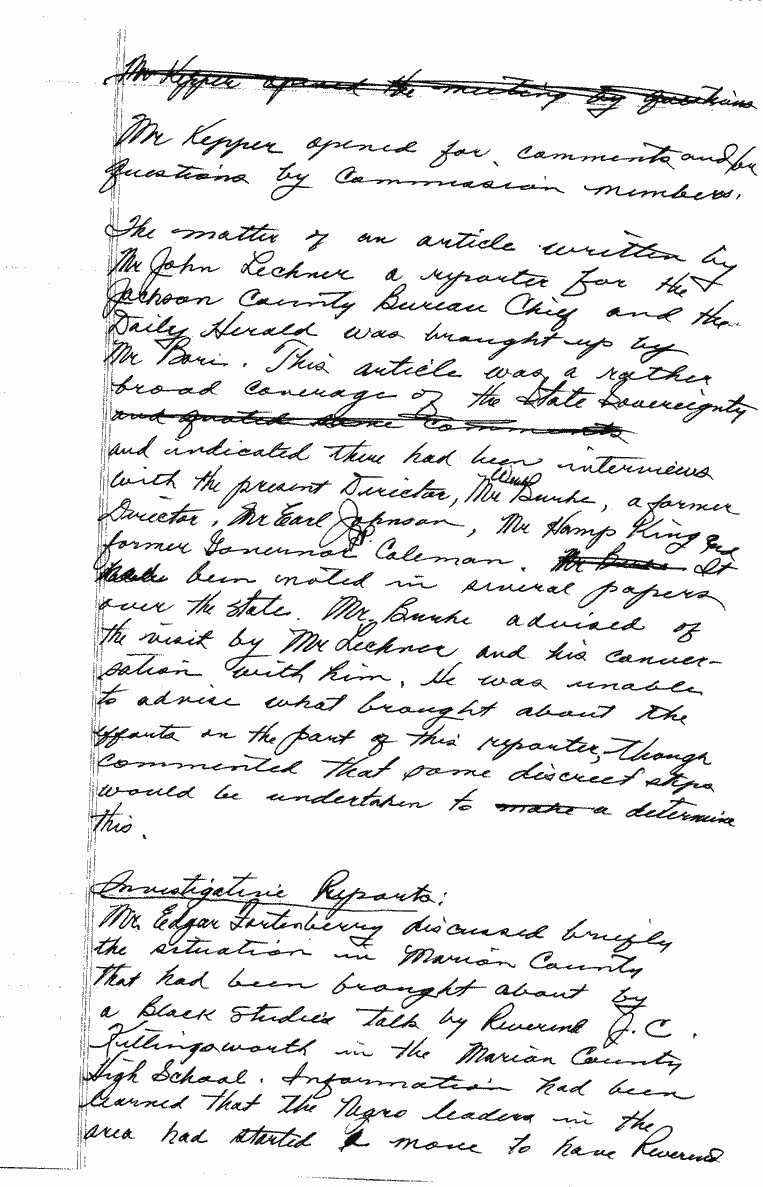 Mr Kepper opened the meeting by questions
Mr Kepper opened for comments and/or
questions by Commission members.
The matter of an article written by
Mr John Lechner a reporter for the
Jackson County Bureau Chief and the
Daily Herald was brought up by
Mr Bori. This article was a rather
broad coverage of the State Sovereignty
and quoted some comments
and indicated there had been interviews
with the present Director, Mr Webb Burke, a former
Director, Mr Earl Johnson, Mr Hamp King and
former Governor J.P. Coleman. It
been noted in several papers
over the State. Mr. Burke advised of
the visit by Mr Lechner and his conver-
sation with him. He was unable
to advise what brought about the
efforts on the part of this reporter, though
commented that some discreet steps
would be undertaken to make a determine
this.
Investigative Reports:
Mr. Edgar Fortenberry discussed briefly
the situation in Marion County
that had been brought about by
a Black Studies talk by Reverend J.C.
Killingsworth in the Marion County
High School. Information had been
learned that the Negro leaders in the
area had started a move to have Reverend